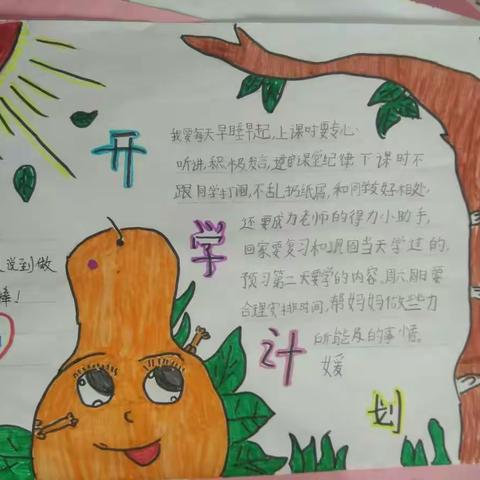 开
学
计
划
我要每天早睡早起,上课时要专心
听讲,积极发言,遵守课堂纪律,下课时不
跟同学打闹,不乱扔纸屑,和同学友好相处,
还要成为老师的得力小助手,
回家要复习和巩固当天学过的,
预习第二天要学的内容,周六周日要
合理安排时间,帮妈妈做些力
所能及的事情。
媛
说到做
棒!